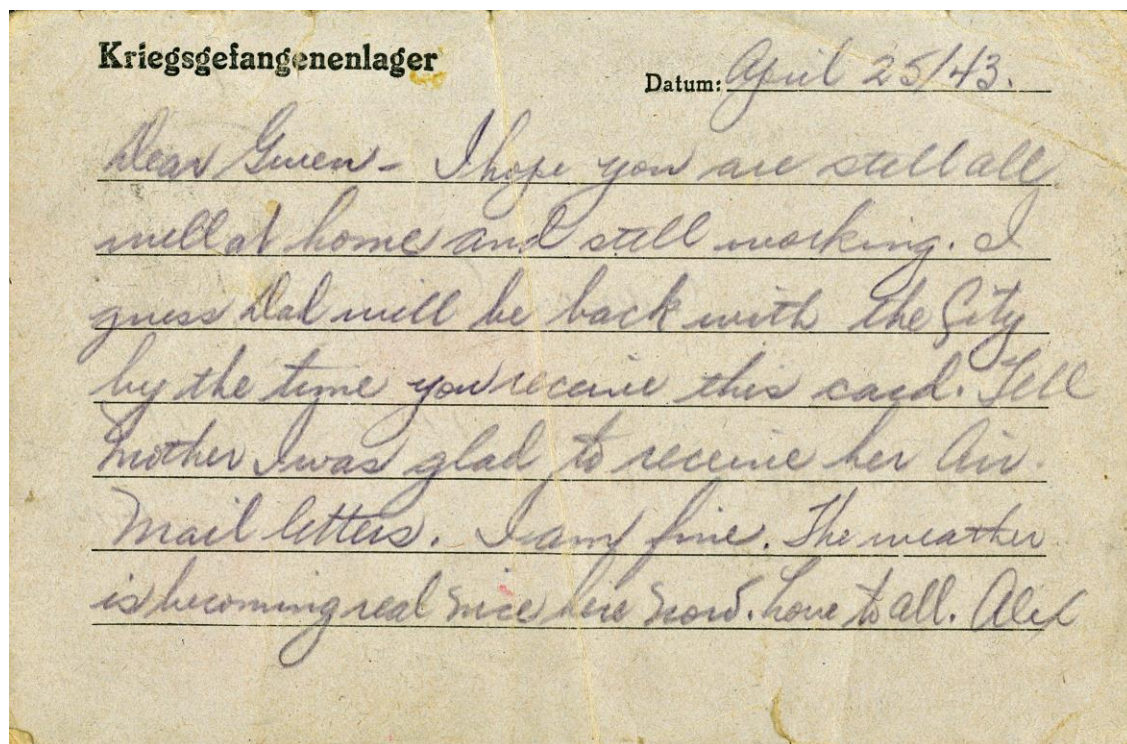 Kriegsgefangenenlager
Datum: April 25/43.
Dear Gwen - I hope you are still all
well at home and still working. I
guess Dad will be back with the City
by the time you receive this card. Tell
Mother I was glad to receive her Air
Mail letters. I am fine. The weather
is becoming real nice here now. Love to all. Alex